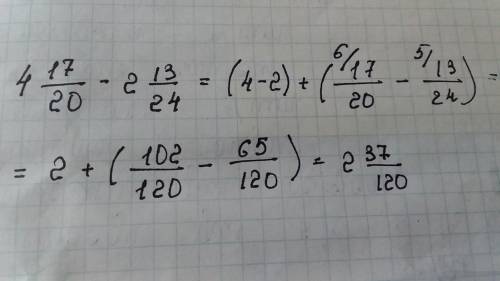 4 17/20 - 2 13/24 = (4-2) + (6/ 17/20 - 5/ 13/24) =
= 2 + (102/120 - 65/120) = 2 37/120